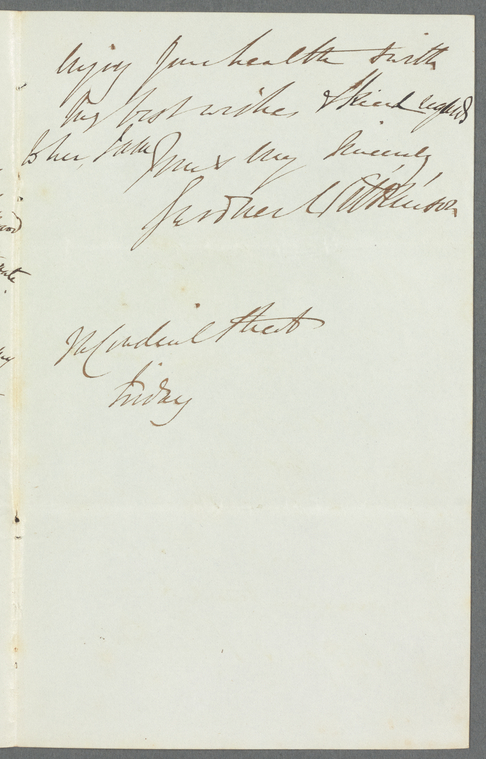 enjoy your health with
my best wishes & kind regards
to her, I am Yours very sincerely
Gardner Wilkinson
Street
Friday